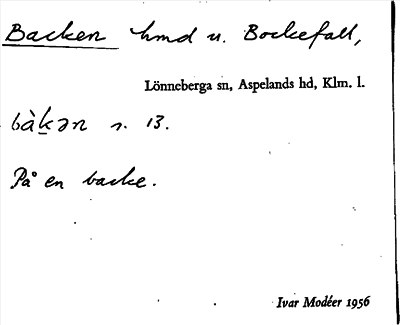 Backen hmd u. Bockefall,
Lönneberga sn, Aspelands hd, Klm. l.
bàk̲ən s. 13.
På en backe.
Ivar Modéer 1956